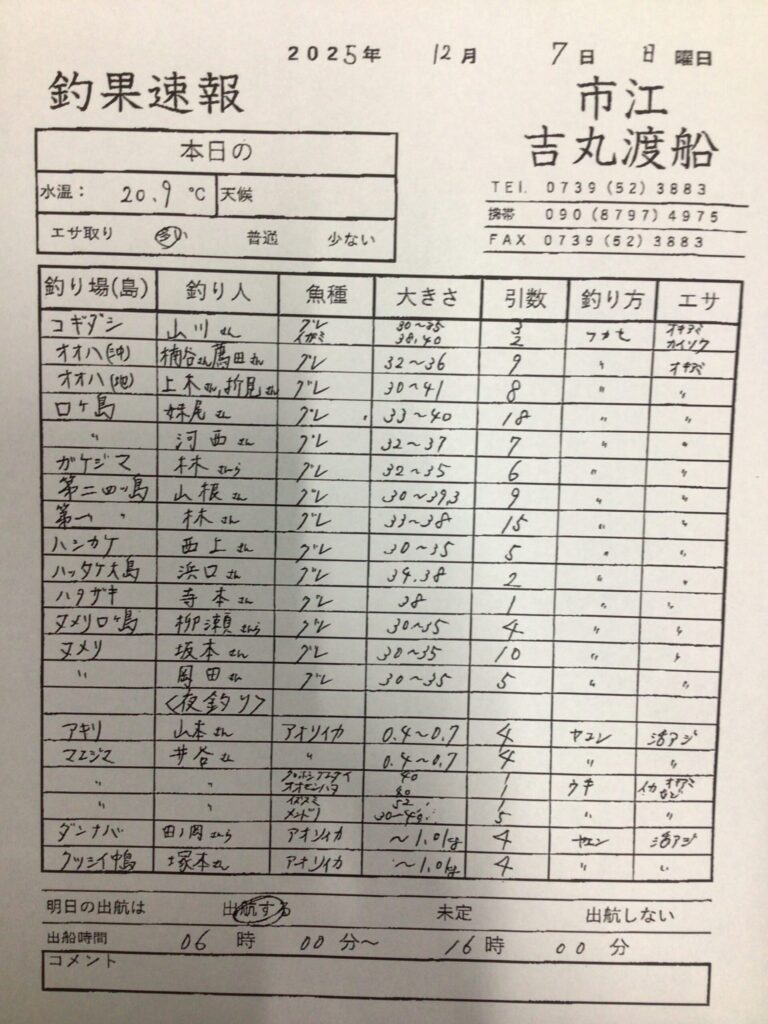 2025年 12月 7日 日曜日
釣果速報
市江
吉丸渡船
TEL 0739(52)3883
携帯 090(8797)4975
FAX 0739(52)3883
本日の
水温: 20.9 ℃ 天候
エサ取り 多い 普通 少ない
釣り場(島) 釣り人 魚種 大きさ 引数 釣り方 エサ
コギダシ 山川さん グレ 30~35 3 フカセ オキアミ
イガミ 38.40 2 カイソウ
オオハ(沖) 楠谷さん薦田さん グレ 32~36 9 〃 オキアミ
オオハ(地) 上木さん,折見さん グレ 30~41 8 〃 〃
ロヶ島 妹尾さん グレ 33~40 18 〃 〃
〃 河西さん グレ 32~37 7 〃 〃
ガケジマ 林さんら グレ 32~35 6 〃 〃
第二四ツ島 山根さん グレ 30~39.3 9 〃 〃
第一 〃 林さん グレ 33~38 15 〃 〃
ハシカケ 西上さん グレ 30~35 5 〃 〃
ハッタケ大島 浜口さん グレ 34.38 2 〃 〃
ハタザキ 寺本さん グレ 38 1 〃 〃
ヌメリロヶ島 柳瀬さんら グレ 30~35 4 〃 〃
ヌメリ 坂本さん グレ 30~35 10 〃 〃
〃 岡田さん グレ 30~35 5 〃 〃
<夜釣り>
アキリ 山本さん アオリイカ 0.4~0.7 4 ヤエン 活アジ
マエジマ 井谷さん 〃 0.4~0.7 4 〃 〃
〃 〃 40 1 ウキ イカ オキアミ
40 1 など
〃 〃 イズスミ 52 1 〃 〃
メンドリ 5
ダンナバ 田ノ岡さんら アオリイカ ~1.0kg 4 ヤエン 活アジ
クツシイ中島 塚本さん アオリイカ ~1.0kg 4 〃 〃
明日の出航は 出航する 未定 出航しない
出船時間 06時 00分~ 16時 00分
コメント